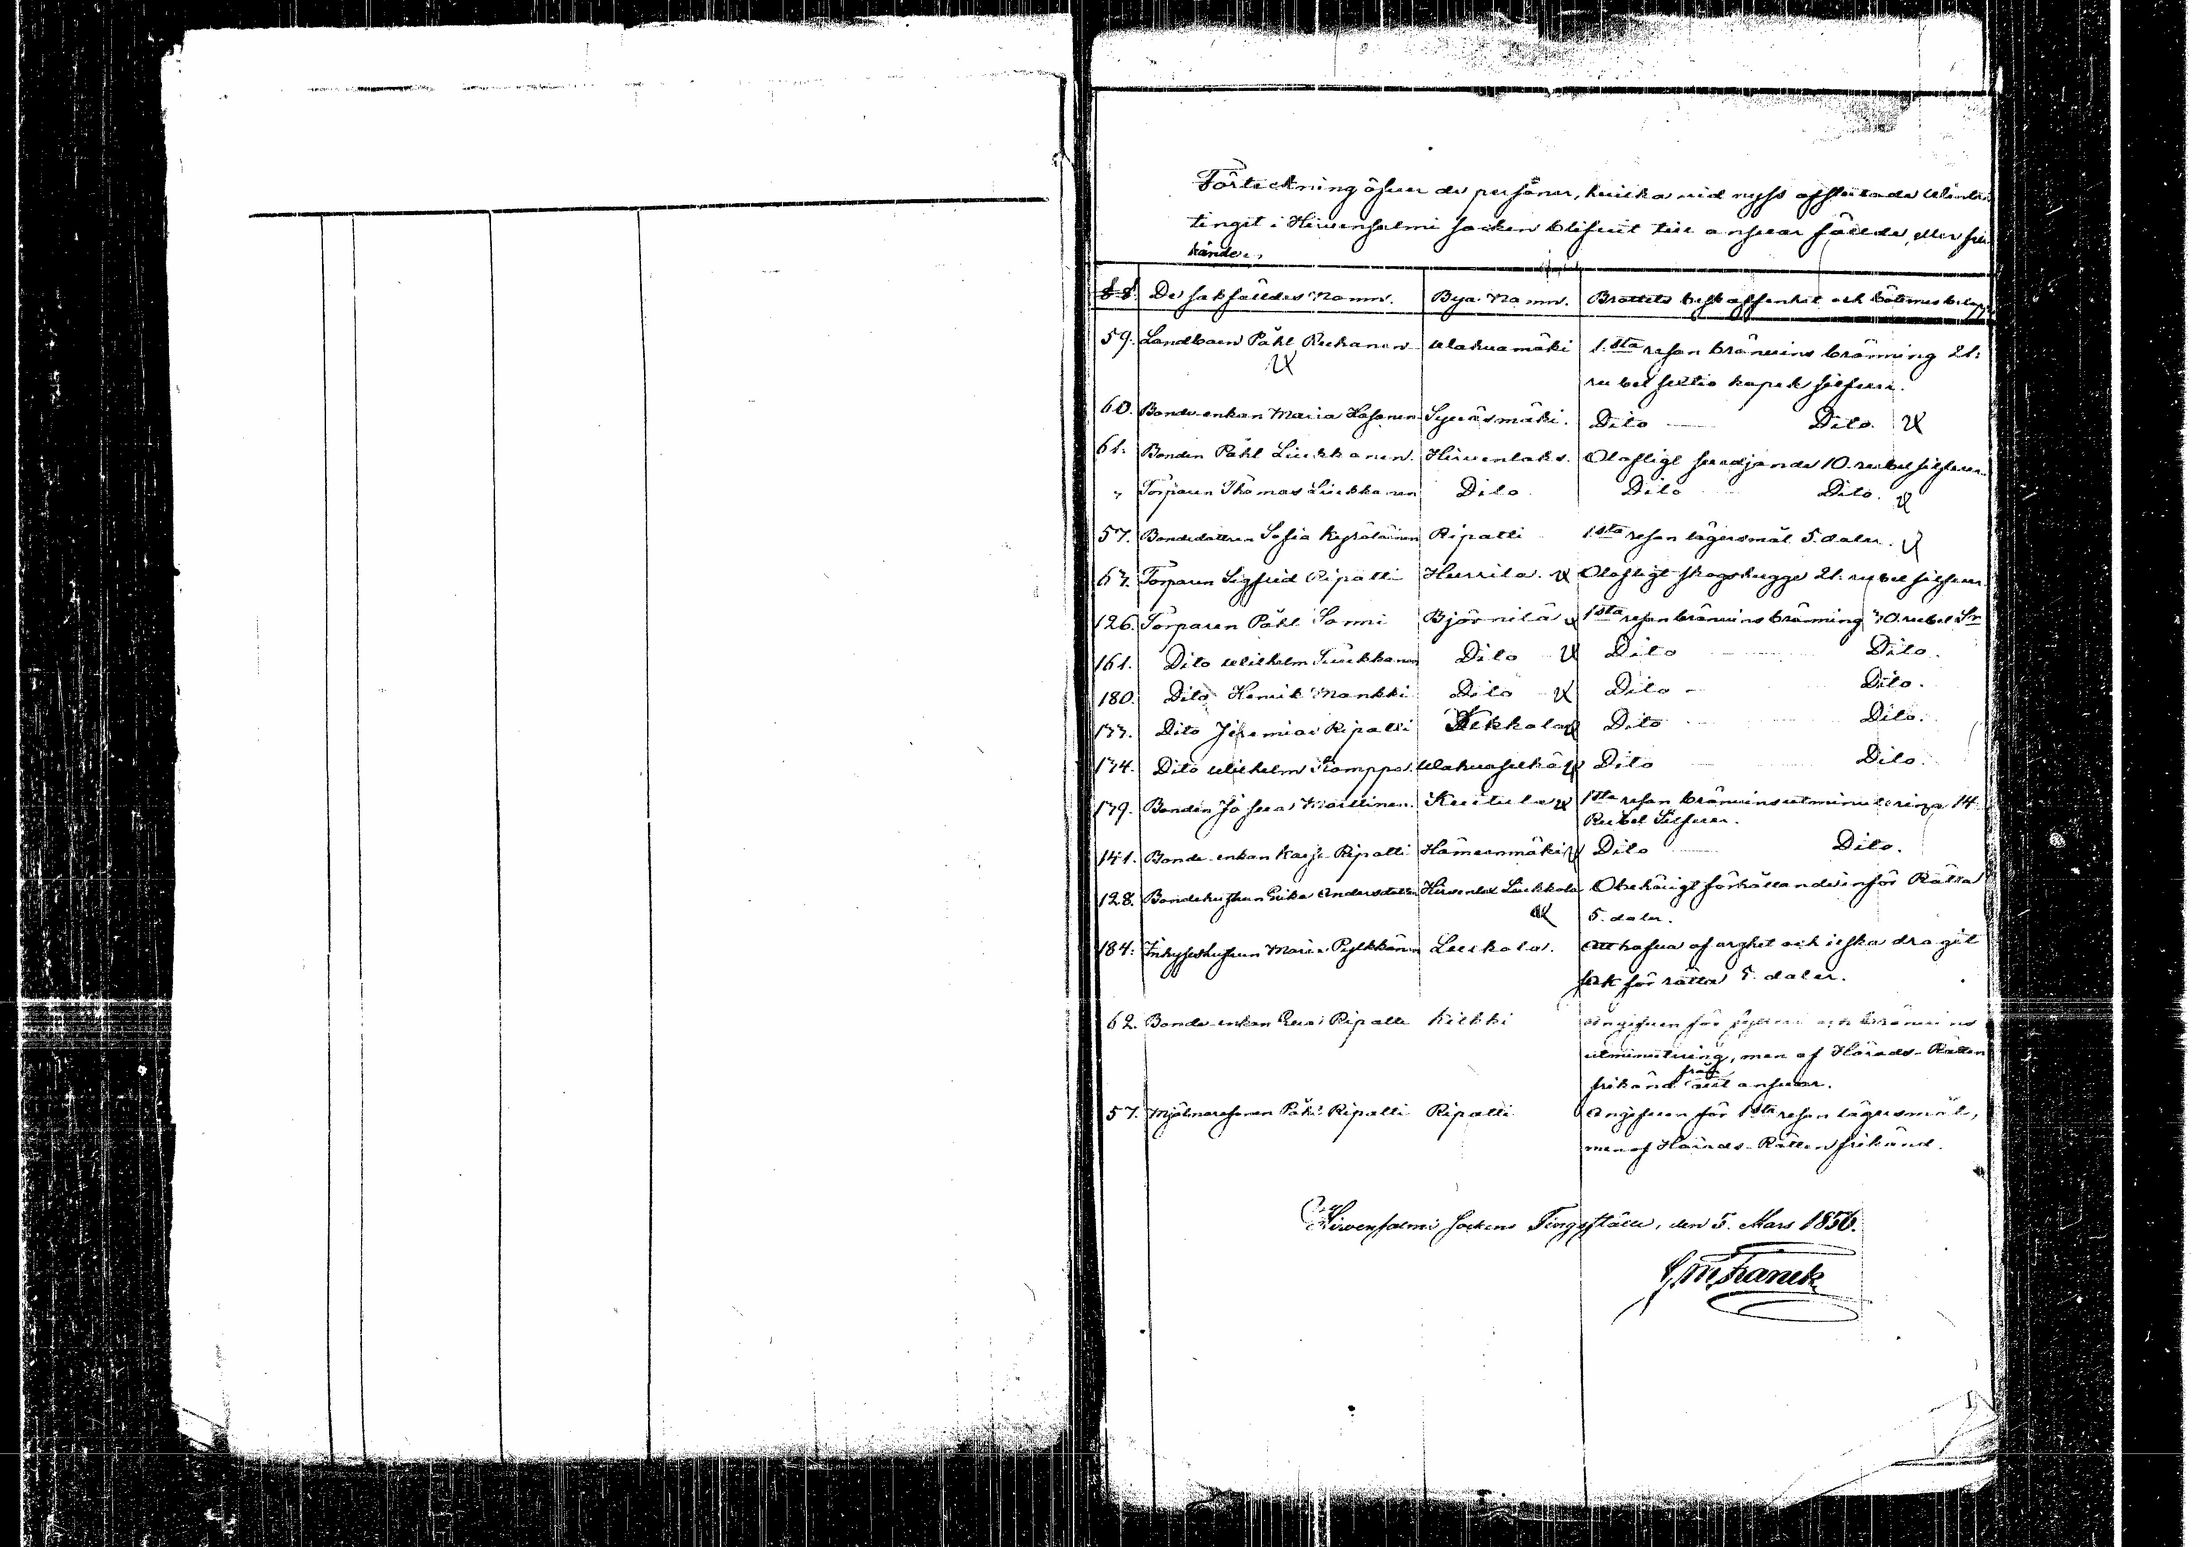 Förteckning öfver de personer, hvilka vid nyss afslutade Winter
tinget i Hirvensalmi Socken blifvit till answar fällde, eller fri
kände.
§§. De sakfälldes Namn. Bya Namn. Brottets beskaffenhet och böternes belopp
59. Landboen Påhl Wahvamäki 1:sta resan bränvins bränning 21:
rubel sextio kopek silfver.
60. Bonde-enkan Maria Hasanen Syväsmäki. Dito Dito.
61. Bonden Påhl Liukkonen. Hirvenlaks. Olofligt svedjande 10. rubel silfver.
" Torparen Thomas Liukkonen Dito Dito Dito.
57. Bondedottren Sofia Ripatti 1sta resan lägersmål 5. daler.
67. Torparen Sigfrid Ripatti Hurrila. Olofligt skogshygge 21. rubel silfver
126. Torparen Påhl Sormi Björnilä 1sta resan bränvins bränning 70. rubel Sr
161. Dito Wilhelm Liukkonen Dito Dito Dito.
180. Dito Henrik Mankki Dito Dito Dito.
177. Dito Jeremias Ripatti Kekkola Dito Dito.
174. Dito Wilhelm Kamppa. Wahvaselkä Dito Dito.
179. Bonden Josua Marttinen. Kuitula 1sta resan bränvins utminutering 14
Rubel Silfver.
141. Bonde-enkan Kaisa Ripatti Hämeenmäki Dito Dito.
128. Bondehustrun Erika Andersdotter Hirvenlax Liukkola Obehörigt förhållande inför Rätta
5. daler.
184. Inhyseshustrun Maria Pylkkänen Leukola. Att hafva af arghet och ilska dragit
sak för rätta 5. daler.
62. Bonde-enkan Eva Ripatti Kilkki Angifven för bränvins
utminutering, men af Härads-Rätten
från
frikänd allt answar.
57. Mjölnaresonen Påhl Ripatti Ripatti Angifven för 1sta resan lägersmål,
men af Härads-Rätten frikänd.
Hirvensalmi Sockens Tingsställe, den 5. Mars 1856.